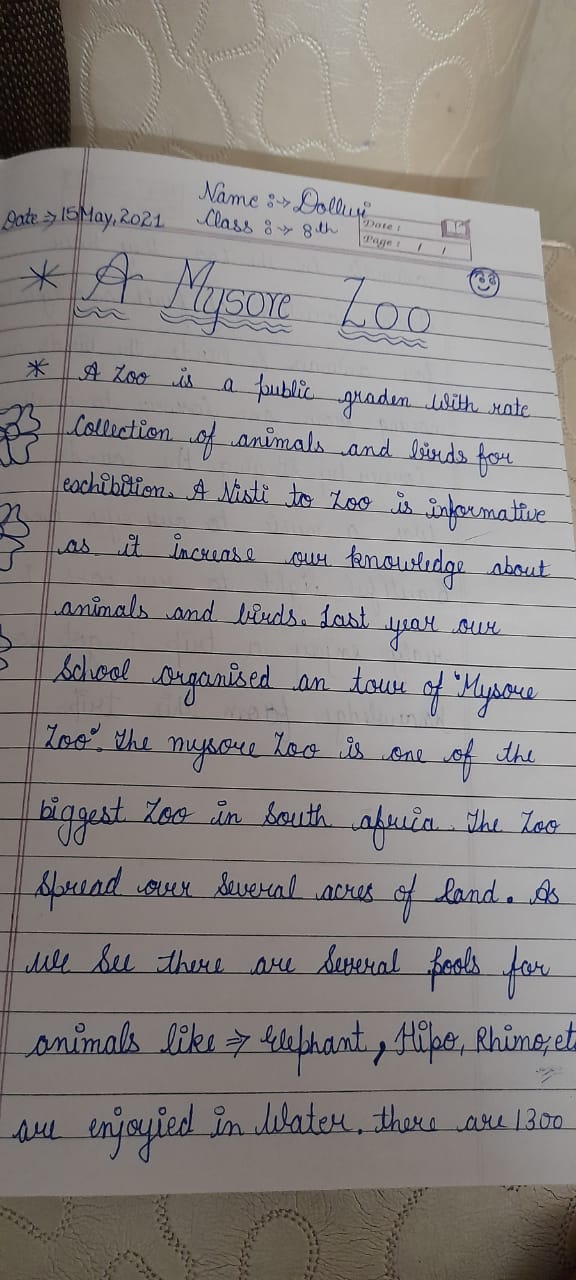 Name :→ Dolluri
Date → 15 May, 2021
Class :→ 8th
Date :
Page : / /
* A Mysore Zoo
* A Zoo is a public graden with rate
Collection of animals and birds for
eachibition. A Nisti to Zoo is informative
as it increase our knowledge about
animals and birds. Last year our
School organised an tour of "Mysore
Zoo". The mysore Zoo is one of the
biggest Zoo in South africa. The Zoo
Spread over Several acres of land. As
we See there are Several pools for
animals like ⇒ Elephant, Hipo, Rhino, et
are enjoyied in Water. there are 1300